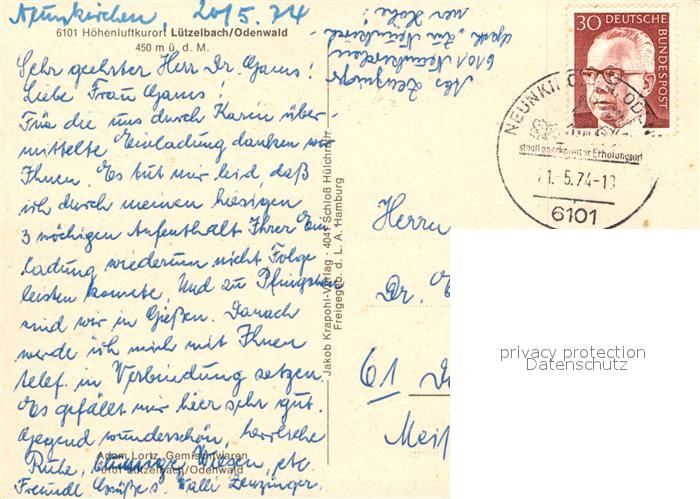 Neunkirchen, 20/5.74
6101 Höhenluftkurort Lützelbach/Odenwald
450 m ü. d. M.
Sehr geehrter Herr Dr. Gams!
Liebe Frau Gams!
Für die uns durch Karin über-
mittelte Einladung danken wir
Ihnen. Es tut mir leid, daß
ich durch meinen hiesigen
3 wöchigen Aufenthalt Ihrer Ein
ladung wiederum nicht Folge
leisten konnte. Und zu Pfingsten
sind wir in Gießen. Danach
werde ich mich mit Ihnen
telef. in Verbindung setzen.
Es gefällt mir hier sehr gut.
Gegend wunderschön, herrliche
Ruhe, Wiesen, etc.
Freundl. Grüße Ihre Valli Zenzinger.
Adam Lortz, Gemischtwaren
6101 Lützelbach/Odenwald
Abs. Zenzinger
6101 Neunkirchen
"Zum Neunkirch-
ner Höhe!"
Jakob Krapohl-Verlag · 4041 Schloß Hülchrath
Freigegeb. d. L. A. Hamburg
30 DEUTSCHE
BUNDESPOST
NEUNKIRCHEN ODENW
staatl anerkannter Erholungsort
21.-5.74-10
6101
Herrn
Dr.
61
privacy protection
Datenschutz